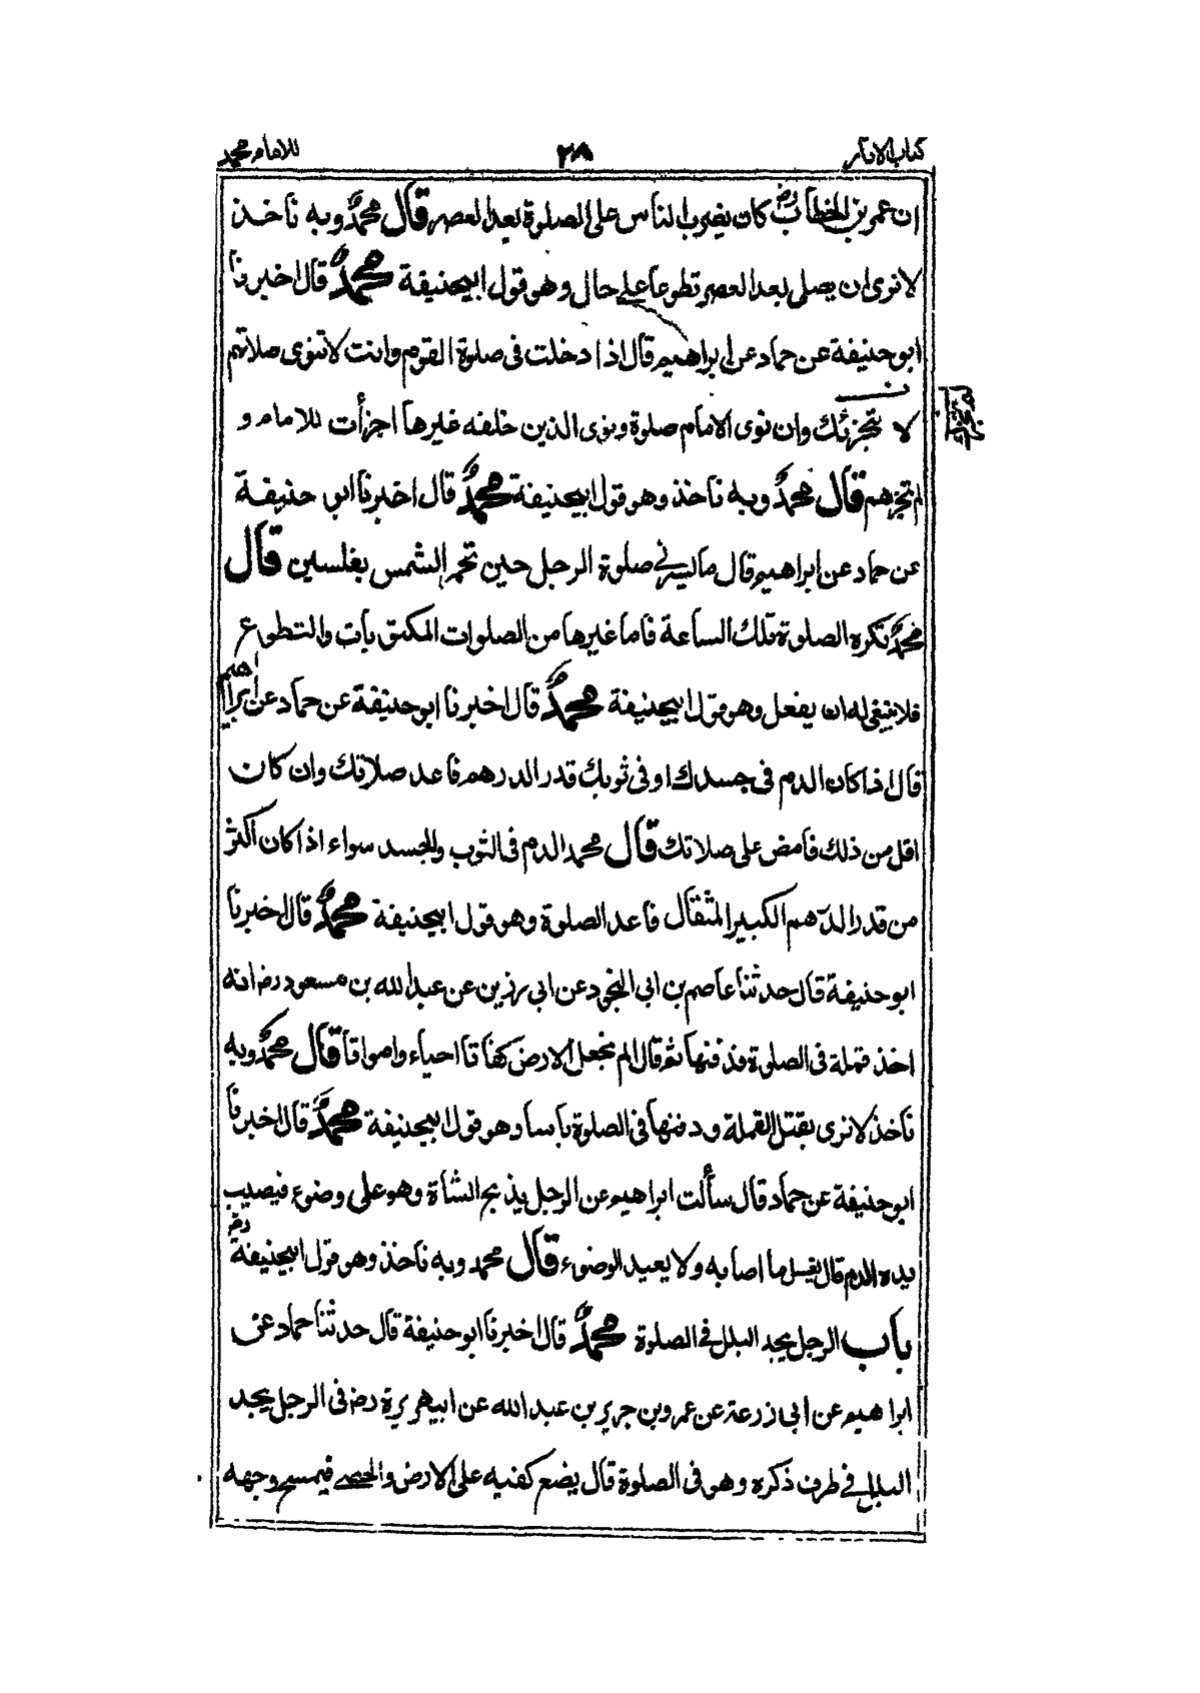 كتاب الاثار ٢٨ للامام محمد
ان عمر بن الخطاب رض كان يضرب الناس على الصلوة بعد العصر قال محمد وبه ناخذ
لا نرى ان يصلى بعد العصر تطوعا على حال وهو قول ابيحنيفة محمد قال اخبرنا
ابو حنيفة عن حماد عن ابراهيم قال اذا دخلت فى صلوة القوم وانت لا تنوى صلاتهم
لا تجزئك وان نوى الامام صلوة ونوى الذين خلفه غيرها اجزأت للامام و
لم تجزهم قال محمد وبه ناخذ وهو قول ابيحنيفة محمد قال اخبرنا ابو حنيفة
عن حماد عن ابراهيم قال ما يسرنى صلوة الرجل حين تحمر الشمس بفلسين قال
محمد تكره الصلوة تلك الساعة فاما غيرها من الصلوات المكتوبات والتطوع
فلا ينبغى له ان يفعل وهو قول ابيحنيفة محمد قال اخبرنا ابو حنيفة عن حماد عن ابراهيم
قال اذا كان الدم فى جسدك او فى ثوبك قدر الدرهم فاعد صلاتك وان كان
اقل من ذلك فامض على صلاتك قال محمد الدم فى الثوب والجسد سواء اذا كان اكثر
من قدر الدرهم الكبير المثقال فاعد الصلوة وهو قول ابيحنيفة محمد قال اخبرنا
ابو حنيفة قال حدثنا عاصم بن ابي النجود عن ابى رزين عن عبد الله بن مسعود رض انه
اخذ قملة فى الصلوة فدفنها ثم قال الم نجعل الارض كفاتا احياء وامواتا قال محمد وبه
ناخذ لا نرى بقتل القملة ودفنها فى الصلوة بأسا وهو قول ابيحنيفة محمد قال اخبرنا
ابو حنيفة عن حماد قال سألت ابراهيم عن الرجل يذبح الشاة وهو على وضوء فيصيب
يده الدم قال يغسل ما اصابه ولا يعيد الوضوء قال محمد وبه ناخذ وهو قول ابيحنيفة رض
باب الرجل يجد البلل فى الصلوة محمد قال اخبرنا ابو حنيفة قال حدثنا حماد عن
ابراهيم عن ابى زرعة عن عمرو بن جرير بن عبد الله عن ابيهريرة رض فى الرجل يجد
البلل فى طرف ذكره وهو فى الصلوة قال يضع كفيه على الارض والحصى فيمسح وجهه